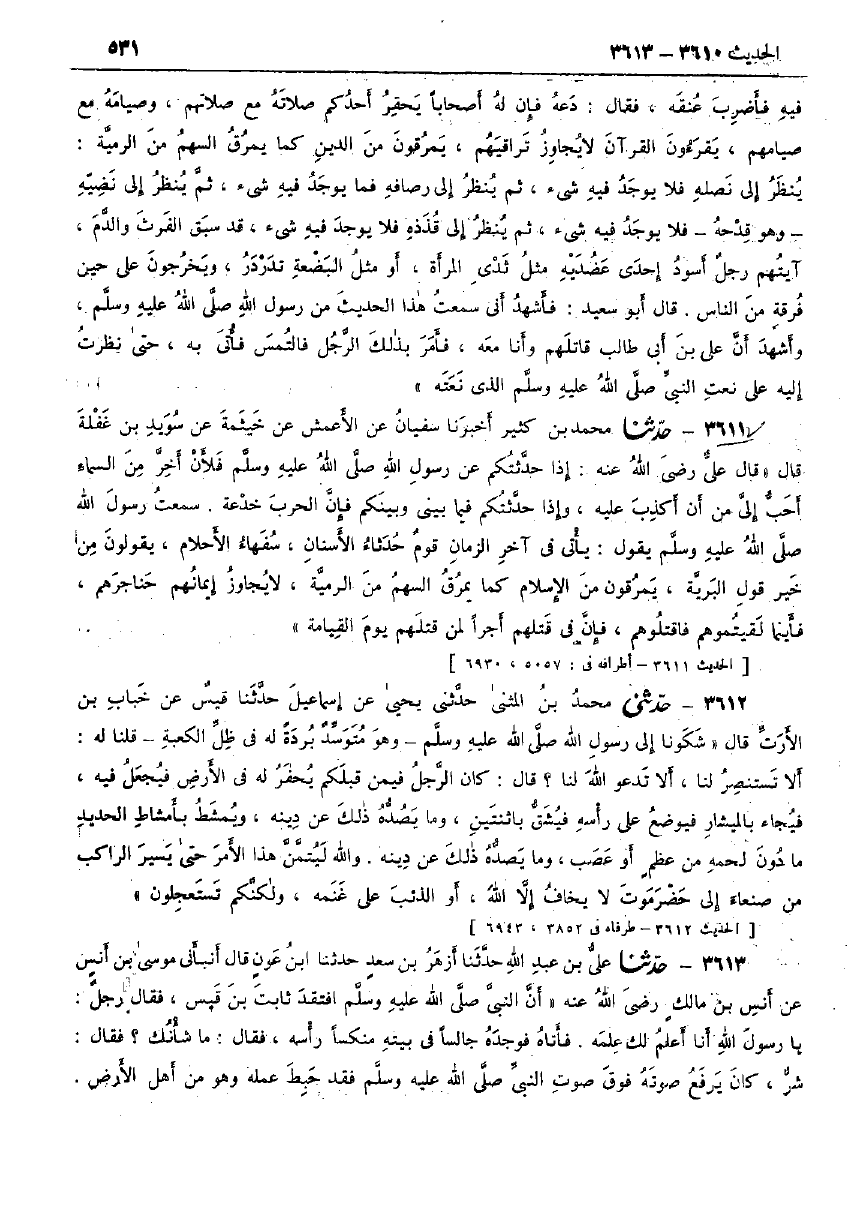 الحديث ٣٦١٠ – ٣٦١٣
٥٣١
فيهِ فأَضرِبَ عُنقَه ، فقال : دَعهُ فإن لهُ أصحاباً يَحقِرُ أحدُكم صلاتَهُ مع صلاتِهم ، وصيامَهُ مع
صيامهم ، يَقرَءُونَ القرآنَ لايُجاوِزُ تَراقيَهُم ، يَمرُقونَ منَ الدينِ كما يمرُقُ السهمُ منَ الرميَّة :
يُنظَرُ إلى نَصلهِ فلا يوجَدُ فيهِ شىء ، ثم يُنظَرُ إلى رصافهِ فما يوجَدُ فيهِ شىء ، ثمَّ يُنظَرُ إلى نَضِيّهِ
– وهو قِدْحهُ – فلا يوجَدُ فيه شىء ، ثم يُنظرُ إلى قُذَذهِ فلا يوجدَ فيهِ شىء ، قد سبَق الفَرثَ والدَّمَ ،
آيتُهم رجلٌ أسودُ إحدَى عضُدَيْهِ مثلُ ثَدْىِ المرأة ، أو مثلُ البَضْعةِ تدَرْدَرُ ، ويَخرُجونَ على حين
فُرقةٍ منَ الناس . قال أبو سعيد : فأَشهدُ أنى سمعتُ هٰذا الحديثَ من رسول اللهِ صلَّى اللهُ عليهِ وسلَّم ،
وأشهدُ أنَّ علىَّ بنَ أبى طالب قاتلَهم وأنا معَه ، فأَمَرَ بذٰلكَ الرَّجُل فالتُمسَ فأُتىَ به ، حتىٰ نظرتُ
إليه على نعتِ النبىِّ صلَّى اللهُ عليهِ وسلَّم الذى نَعَتَه »
٣٦١١ – حدّثنا محمدبن كثير أخبرَنا سفيانُ عن الأَعمش عن خَيثمةَ عن سُوَيدِ بن غَفْلةَ
قال « قال علىٌّ رضىَ اللهُ عنه : إذا حدَّثتُكم عن رسولِ اللهِ صلَّى اللهُ عليهِ وسلَّم فلَأَنْ أَخِرَّ مِنَ السماءِ
أحَبُّ إلىَّ من أن أكذِبَ عليه ، وإذا حدَّثتُكم فيما بينى وبينَكم فإنَّ الحربَ خدْعة . سمعتُ رسولَ الله
صلَّى اللهُ عليهِ وسلَّم يقول : يأتى فى آخرِ الزمانِ قومٌ حُدَثاءُ الأَسنان ، سُفَهاءُ الأحلام ، يقولونَ مِن
خَيرِ قولِ البَريَّة ، يَمرُقون منَ الإسلامِ كما يمرُقُ السهمُ منَ الرميَّة ، لايُجاوزُ إيمانُهم حَناجرَهم ،
فأينما لَقيتُموهم فاقتلُوهم ، فإنَّ فى قَتلهم أجراً لمن قتلَهم يومَ القِيامة »
[ الحديث ٣٦١١ – أطرافه فى : ٥٠٥٧ ، ٦٩٣٠ ]
٣٦١٢ – حدّثنى محمدُ بنُ المثنىٰ حدَّثنى يحيىٰ عن إسماعيلَ حدَّثنا قيسٌ عن خَبابِ بن
الأرَتِّ قال « شكَونا إلى رسولِ الله صلَّى الله عليه وسلَّم – وهوَ مُتَوَسِّدٌ بُردَةً له فى ظِلِّ الكعبةِ – قلنا له :
ألا تَستنصِرُ لنا ، ألا تَدعو اللهَ لنا ؟ قال : كان الرَّجلُ فيمن قبلَكم يُحفَرُ له فى الأرضِ فيُجعَلُ فيه ،
فيُجاء بالميشارِ فيوضعُ على رأسهِ فيُشَقُّ باثنتَينِ ، وما يَصُدُّهُ ذٰلكَ عن دِينه ، ويُمشَطُ بأَمشاطِ الحديدِ
ما دُونَ لحمهِ من عظمٍ أو عَصَب ، وما يَصدُّهُ ذٰلكَ عن دِينه . والله لَيُتمَّنَّ هذا الأمرَ حتىٰ يَسيرَ الراكب
من صنعاءَ إلى حَضْرَموْتَ لا يخافُ إلَّا اللهَ ، أو الذئبَ على غَنَمه ، ولٰكنَّكم تَستَعجلون »
[ الحديث ٣٦١٢ – طرفاه فى ٣٨٥٢ ، ٦٩٤٣ ]
٣٦١٣ – حدّثنا علىُّ بن عبدِ اللهِ حدَّثنا أزهَرُ بن سعدٍ حدثنا ابنُ عَونٍ قال أنبأَنى موسىٰ بن أنَسٍ
عن أنَسِ بنِ مالكٍ رضىَ اللهُ عنه « أنَّ النبىَّ صلَّى الله عليه وسلَّم افتقدَ ثابتَ بنَ قَيس ، فقال رجلٌ :
يا رسولَ اللهِ أنا أعلمُ لكَ عِلمَه . فأَتاهُ فوجَدَهُ جالساً فى بيتهِ منكساً رأسه ، فقال : ما شأْنُك ؟ فقال :
شرٌّ ، كانَ يَرفَعُ صوتَهُ فوقَ صوتِ النبىِّ صلَّى الله عليه وسلَّم فقد حَبِطَ عمله وهو من أهل الأَرضِ .